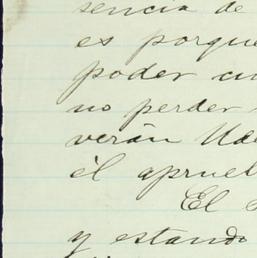 sencia de
es porque
poder cu
no perder
verán Ude
él aprueb
El
y estando